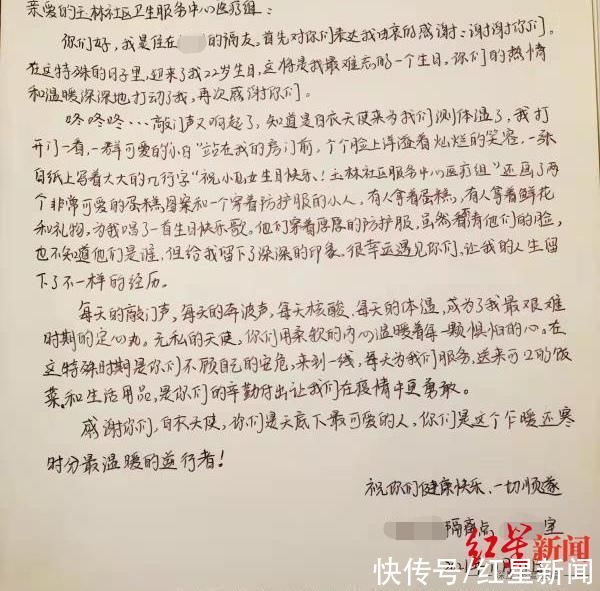 亲爱的玉林社区卫生服务中心医疗组:
你们好,我是住在 的病友。首先对你们表达我由衷的感谢:谢谢你们。
在这特殊的日子里,迎来了我22岁生日,这将是我最难忘的一个生日。你们的热情
和温暖深深地打动了我,再次感谢你们。
咚咚咚…敲门声又响起了,知道是白衣天使来为我们测体温了,我打
开门一看,一群可爱的"小白"站在我的房门前,个个脸上洋溢着灿烂的笑容,一张
白纸上写着大大的几行字"祝小 生日快乐!玉林社区服务中心医疗组"还画了两
个非常可爱的蛋糕图案和一个穿着防护服的小人,有人拿着蛋糕,有人拿着鲜花
和礼物,为我唱了一首生日快乐歌。他们穿着厚厚的防护服,虽然看清他们的脸,
也不知道他们是谁,但给我留下了深深的印象。很幸运遇见你们,让我的人生留
下了不一样的经历。
每天的敲门声,每天的奔波声,每天核酸、每天的体温,成为了我最艰难
时期的定心丸。无私的天使,你们用柔软的内心温暖着每一颗惧怕的心。在
这特殊时期是你们不顾自己的安危,来到一线,每天为我们服务,送来可口的饭
菜和生活用品,是你们的辛勤付出让我们在疫情中更勇敢。
感谢你们,白衣天使,你们是天底下最可爱的人,你们是这个乍暖还寒
时分最温暖的逆行者!
祝你们健康快乐、一切顺遂
隔离点 室
红星新闻
快传号/红星新闻